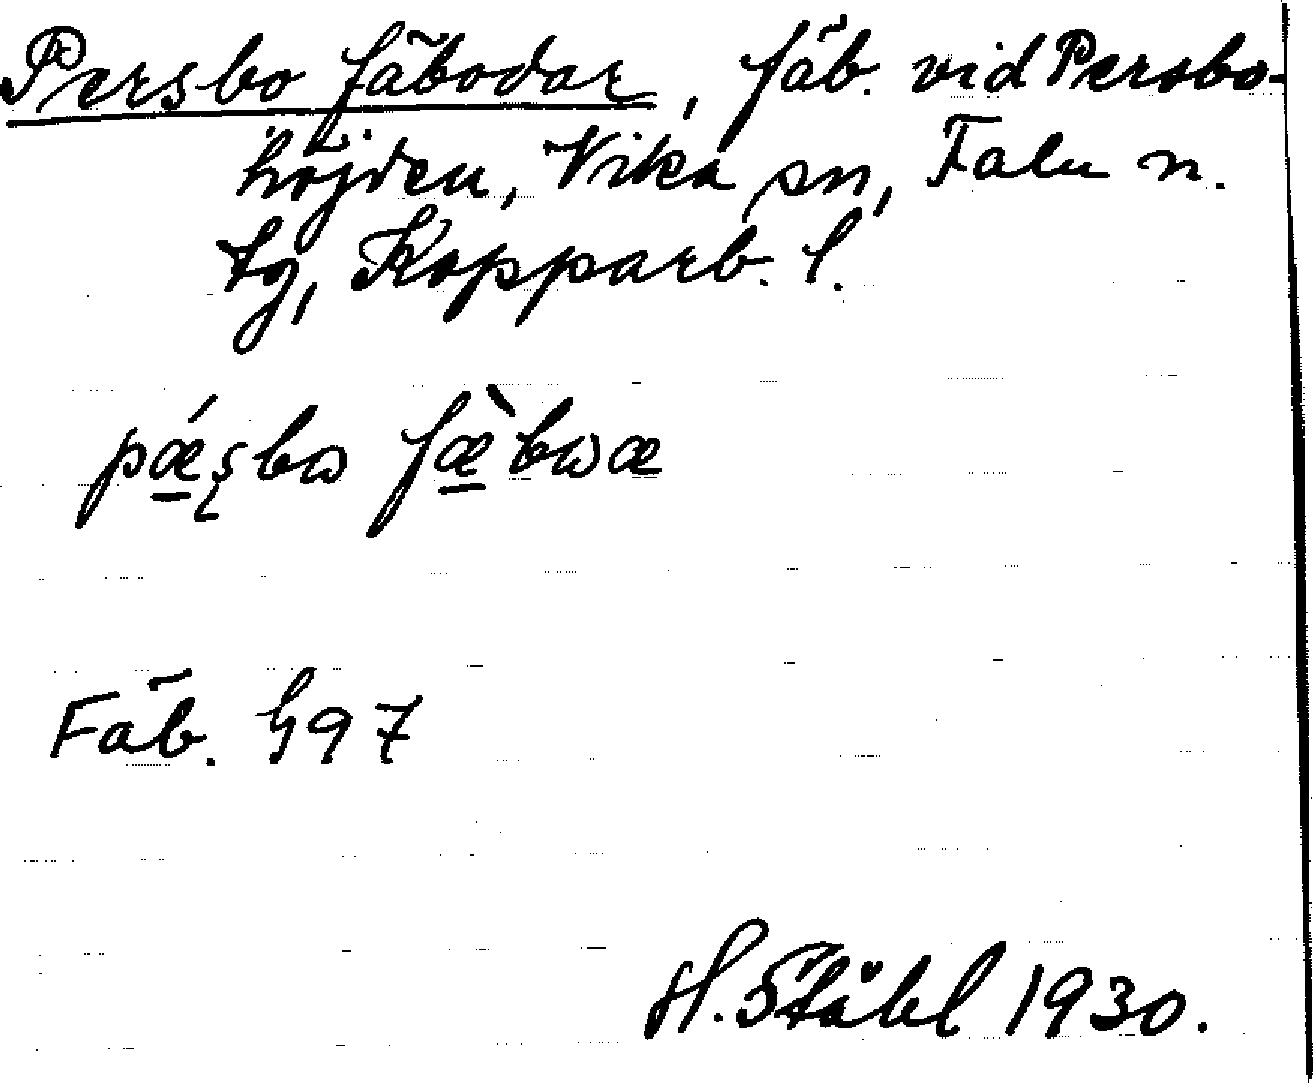 Persbo fäbodar, fäb. vid Persbo-
höjden, Vika sn, Falu n.
tg, Kopparb. l.
pǽṣbɷ fæ̀bɷæ
Fäb. 997
H. Ståhl 1930.